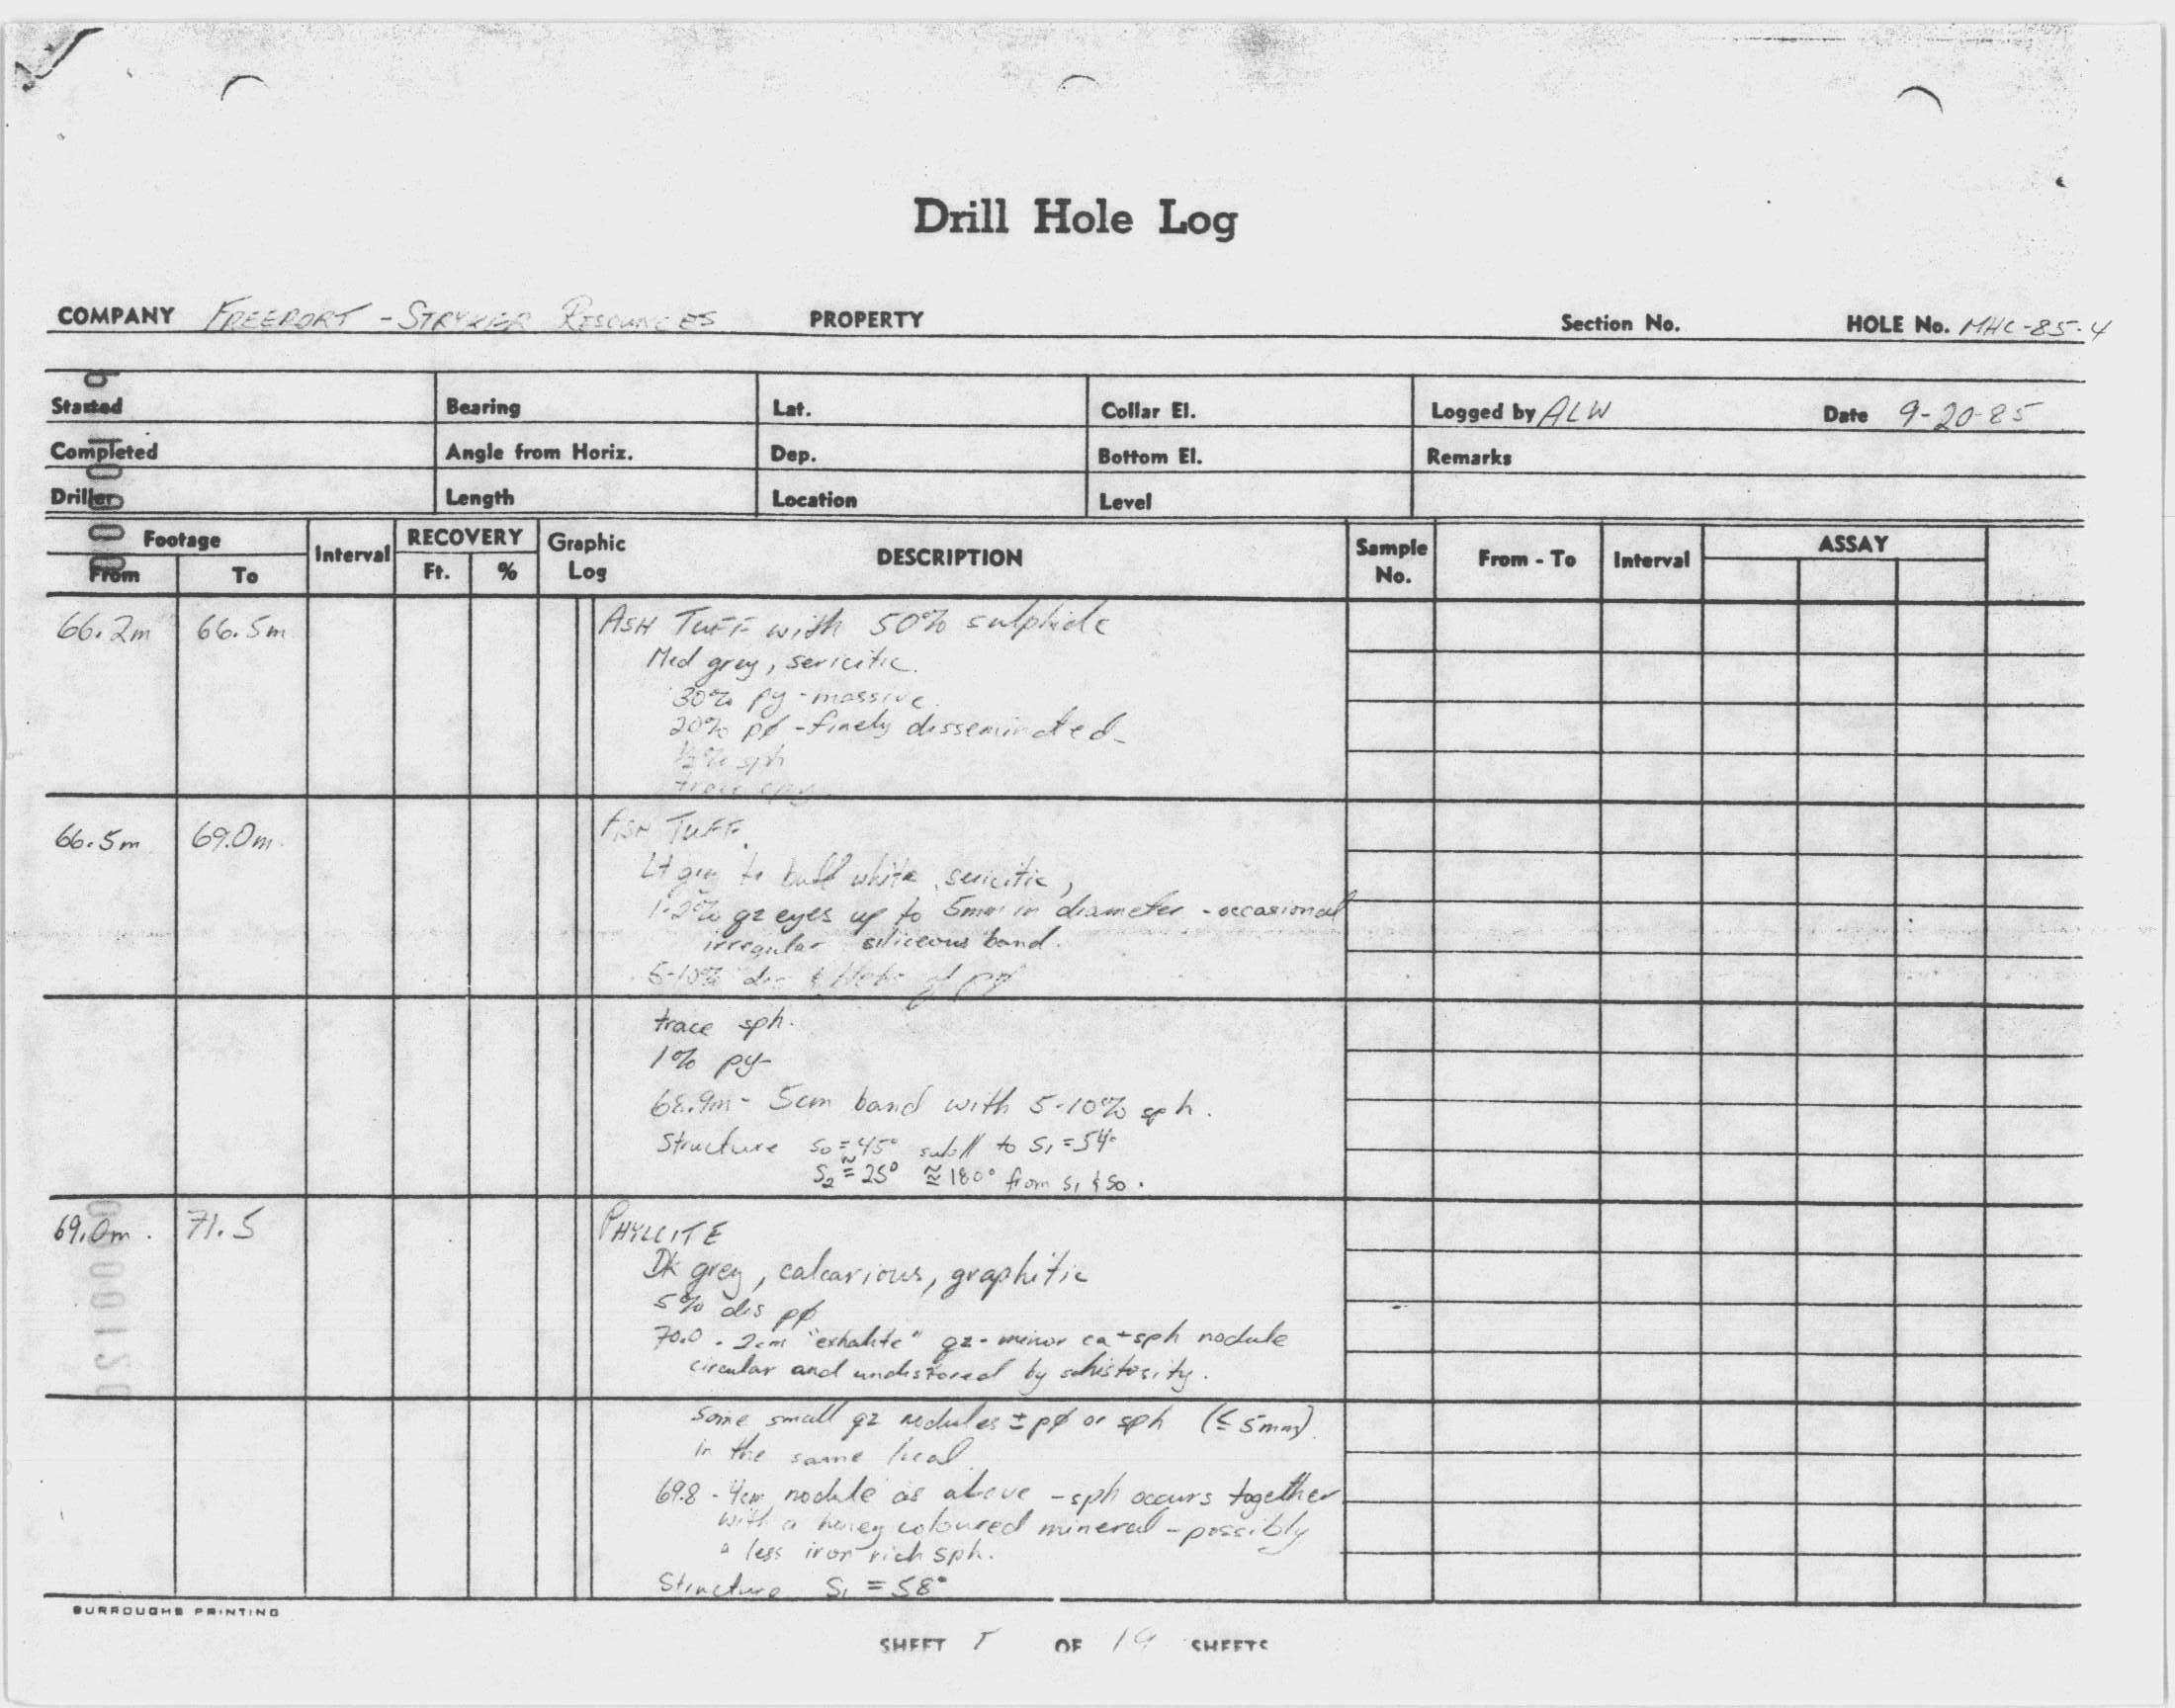 Drill Hole Log
COMPANY FREEPORT - STRYKER RESOURCES PROPERTY Section No. HOLE No. MHC-85-4
Started Bearing Lat. Collar El. Logged by ALW Date 9-20-85
Completed Angle from Horiz. Dep. Bottom El. Remarks
Driller Length Location Level
Footage Interval RECOVERY Graphic Log DESCRIPTION Sample No. From - To Interval ASSAY
From To Ft. %
66.2m 66.5m ASH TUFF with 50% sulphide
Med grey, sericitic.
30% py - massive.
20% pø - finely disseminated
½% sph
trace cpy
66.5m 69.0m ASH TUFF.
Lt grey to buff white, sericitic,
1-2% qz eyes up to 5mm in diameter - occasional
irregular siliceous band.
5-10% dis & blebs of pø
trace sph.
1% py
68.9m - 5cm band with 5-10% sph.
Structure S0 = 45° sub// to S1 = 54°
S2 ≅ 25° ≅ 180° from S1 & S0.
69.0m. 71.5 PHYLLITE
Dk grey, calcarious, graphitic
5% dis pø
70.0 - 2cm "exhalite" qz - minor ca + sph nodule
circular and undistored by schistosity.
Some small qz nodules ± pø or sph (≤ 5mm)
in the same
69.8 - 4cm nodule as above - sph occurs together
with a honey coloured mineral - possibly
a less iron rich sph.
Structure S1 = 58°
BURROUGHS PRINTING
SHEET OF 19 SHEETS